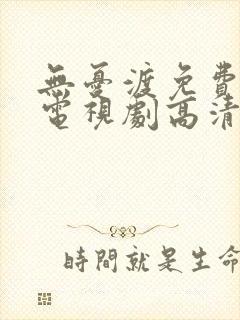 無憂渡免費
電視劇高清
時間就是生命